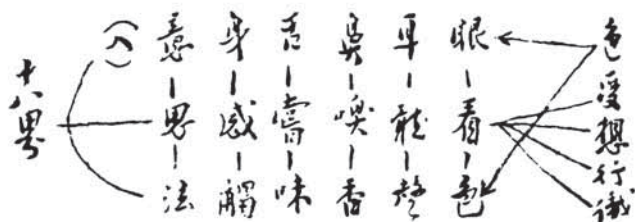 色受想行識
眼－看－色
耳－聽－聲
鼻－嗅－香
舌－嘗－味
身－感－觸
意－思－法
(六)
十八界